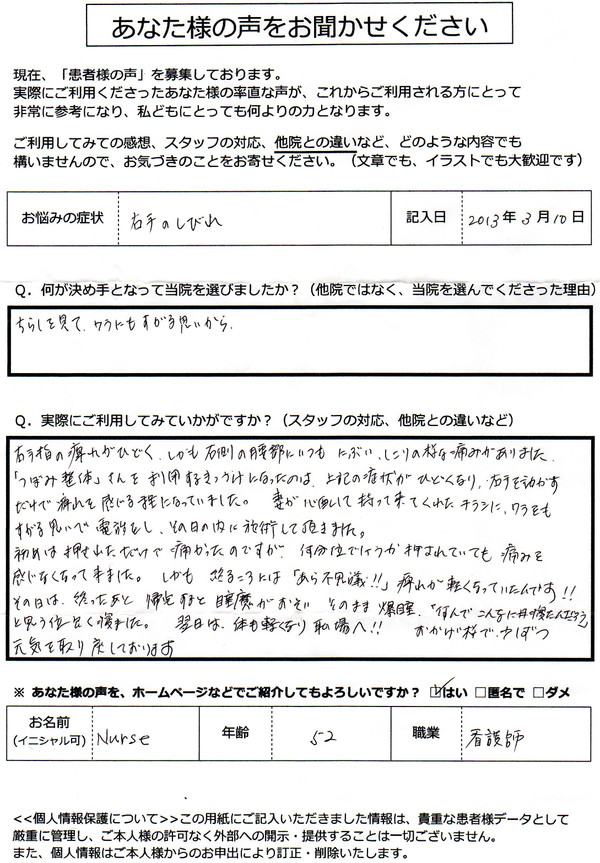 あなた様の声をお聞かせください
現在、「患者様の声」を募集しております。
実際にご利用くださったあなた様の率直な声が、これからご利用される方にとって
非常に参考になり、私どもにとっても何よりの力となります。
ご利用してみての感想、スタッフの対応、他院との違いなど、どのような内容でも
構いませんので、お気づきのことをお寄せください。（文章でも、イラストでも大歓迎です）
お悩みの症状 右手のしびれ 記入日 2013年3月10日
Q．何が決め手となって当院を選びましたか？（他院ではなく、当院を選んでくださった理由）
ちらしを見て、ワラにもすがる思いから.
Q．実際にご利用してみていかがですか？（スタッフの対応、他院との違いなど）
右手指の痺れがひどく、しかも右側の腰部にいつも にぶい、しこりの様な痛みがありました.
「つぼみ整体」さんを利用するきっかけになったのは、上記の症状がひどくなり、右手を動かす
だけで痺れを感じる様になっていました。 妻が心配して持って来てくれたチラシに、ワラをも
すがる思いで 電話をし、その日の内に施術して頂きました。
初めは 押されただけで 痛かったのですが、何分位でしょうか 押されていても 痛みを
感じなくなって来ました。 しかも 終るころには「あら不思議!!」痺れが軽くなっていたんです!!
その日は、終ったあと 帰宅すると 睡魔がおそい そのまま 爆睡、「何でこんなに
と思う位よく寝ました。 翌日は、体も軽くなり 職場へ!! おかげ様で、
元気を取り戻しております
※ あなた様の声を、ホームページなどでご紹介してもよろしいですか？ ☑はい □匿名で □ダメ
お名前
(イニシャル可) Nurse 年齢 52 職業 看護師
<<個人情報保護について>>この用紙にご記入いただきました情報は、貴重な患者様データとして
厳重に管理し、ご本人様の許可なく外部への開示・提供することは一切ございません。
また、個人情報はご本人様からのお申出により訂正・削除いたします。